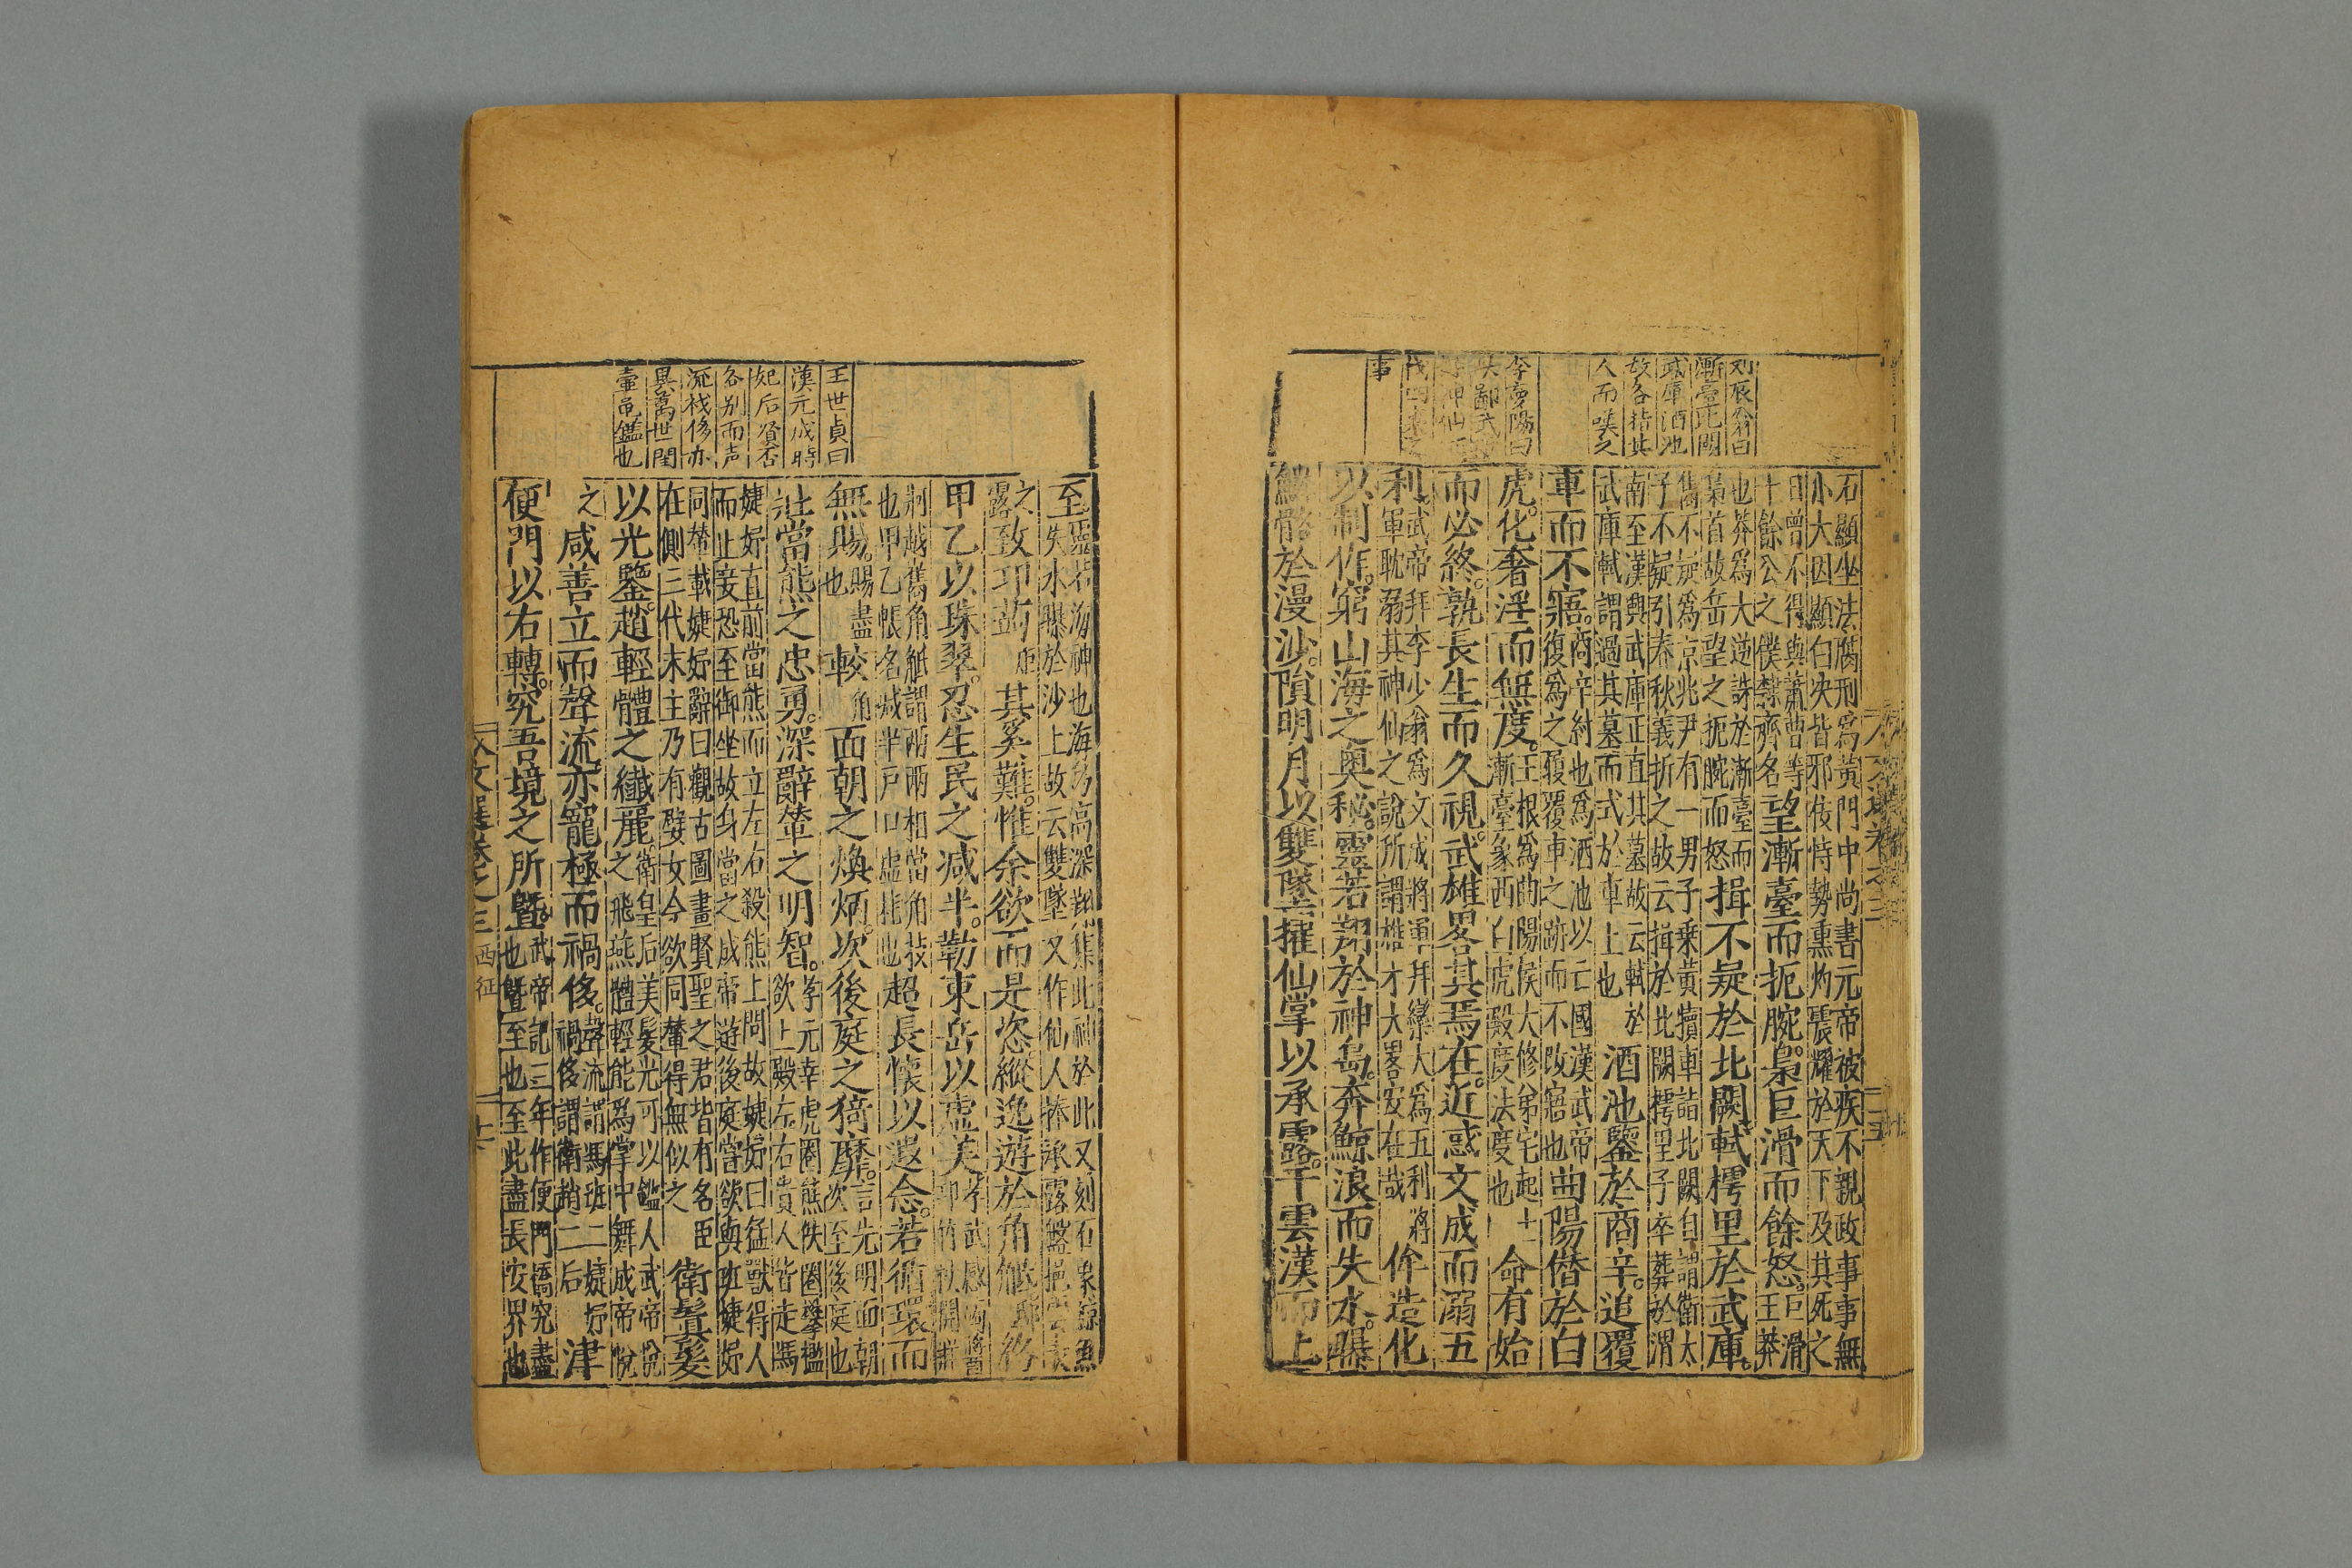 刘辰翁曰
漸臺北闕
武庫酒池
故各指其
人而嘆之
李
事
石顯坐法腐刑爲黃門中尚書元帝被疾不親政事事無
小大因顯白决皆邪佞恃勢熏灼震耀於天下及其死之
日曾不得與蕭曹等
十餘公之僕隸齊名
望漸臺而扼腕梟巨滑而餘怒。
巨滑
王莽
也莽爲大逆誅於漸臺而
梟首故岳望之扼腕而怒
揖不疑於北闕軾樗里於武庫。
雋不疑爲京兆尹有一男子乗黃犢車詣北闕自謂衛太
子不疑引春秋義折之故云揖於北闕樗里子卒葬於渭
南至漢興武庫正直其墓故云軾於
武庫軾謂過其墓而式於車上也
酒池鑒於商辛。追覆
車而不寤。
商辛紂也爲酒池以亡國漢武帝
復爲之覆車之跡而不改寤也
曲陽僭於白
虎。化奢淫而無度。
王根爲曲陽侯大修第宅起土
漸臺象西白虎殿度法度也
命有始
而必終。孰長生而久視。武雄畧其焉在。近惑文成而溺五
利。
武帝拜李少翁爲文成將軍拜欒大爲五利將
軍耽溺其神仙之說所謂雄才大畧安在哉
侔造化
以制作。窮山海之奥秘。靈若翔於神島。奔鯨浪而失水。曝
鱗骼於漫沙。隕明月以雙墜。擢仙掌以承露。干雲漢而上
王世貞曰
漢元成時
妃后賢否
各别而声
流伐侈亦
具萬世閨
壷龟鑑也
至。
靈若海神也海島高深翔集此神於此又刻石爲鯨魚
失水曝於沙上故云雙墜又作仙人捧承露盤
之
露
致邛蒟
其奚難。惟余欲而是恣縱逸遊於角觝絡
甲乙以珠翠。忍生民之减半。勒東岳以虚美
超長懷以遐念。若循環而
無賜。
賜盡
也
較
角
面朝之煥炳。次後庭之猗靡。
言先明面朝
次至後庭也
壯當熊之忠勇。深辭輦之明智。
孝元幸虎圈熊佚圈攀檻
欲上殿左右貴人皆走馮
婕妤直前當熊而立左右殺熊上問故婕妤曰猛獸得人
而止妾恐至御坐故身當之成帝遊後庭嘗欲與班婕妤
同輦載婕妤辭曰觀古圖畫賢聖之君皆有名臣
在側三代末主乃有嬖女今欲同輦得無似之
衛鬒髮
以光鑒。趙輕體之纖麗
衛皇后美髮光可以鑑人武帝悅
之飛燕體輕能爲掌中舞成帝悅
之
咸善立而聲流亦寵極而禍侈。
聲流謂馮班二婕妤
禍侈謂衛趙二后
津
便門以右轉。究吾境之所曁。
武帝記三年作便門橋究盡
也曁至也至此盡長安界也
文選卷之三
西征